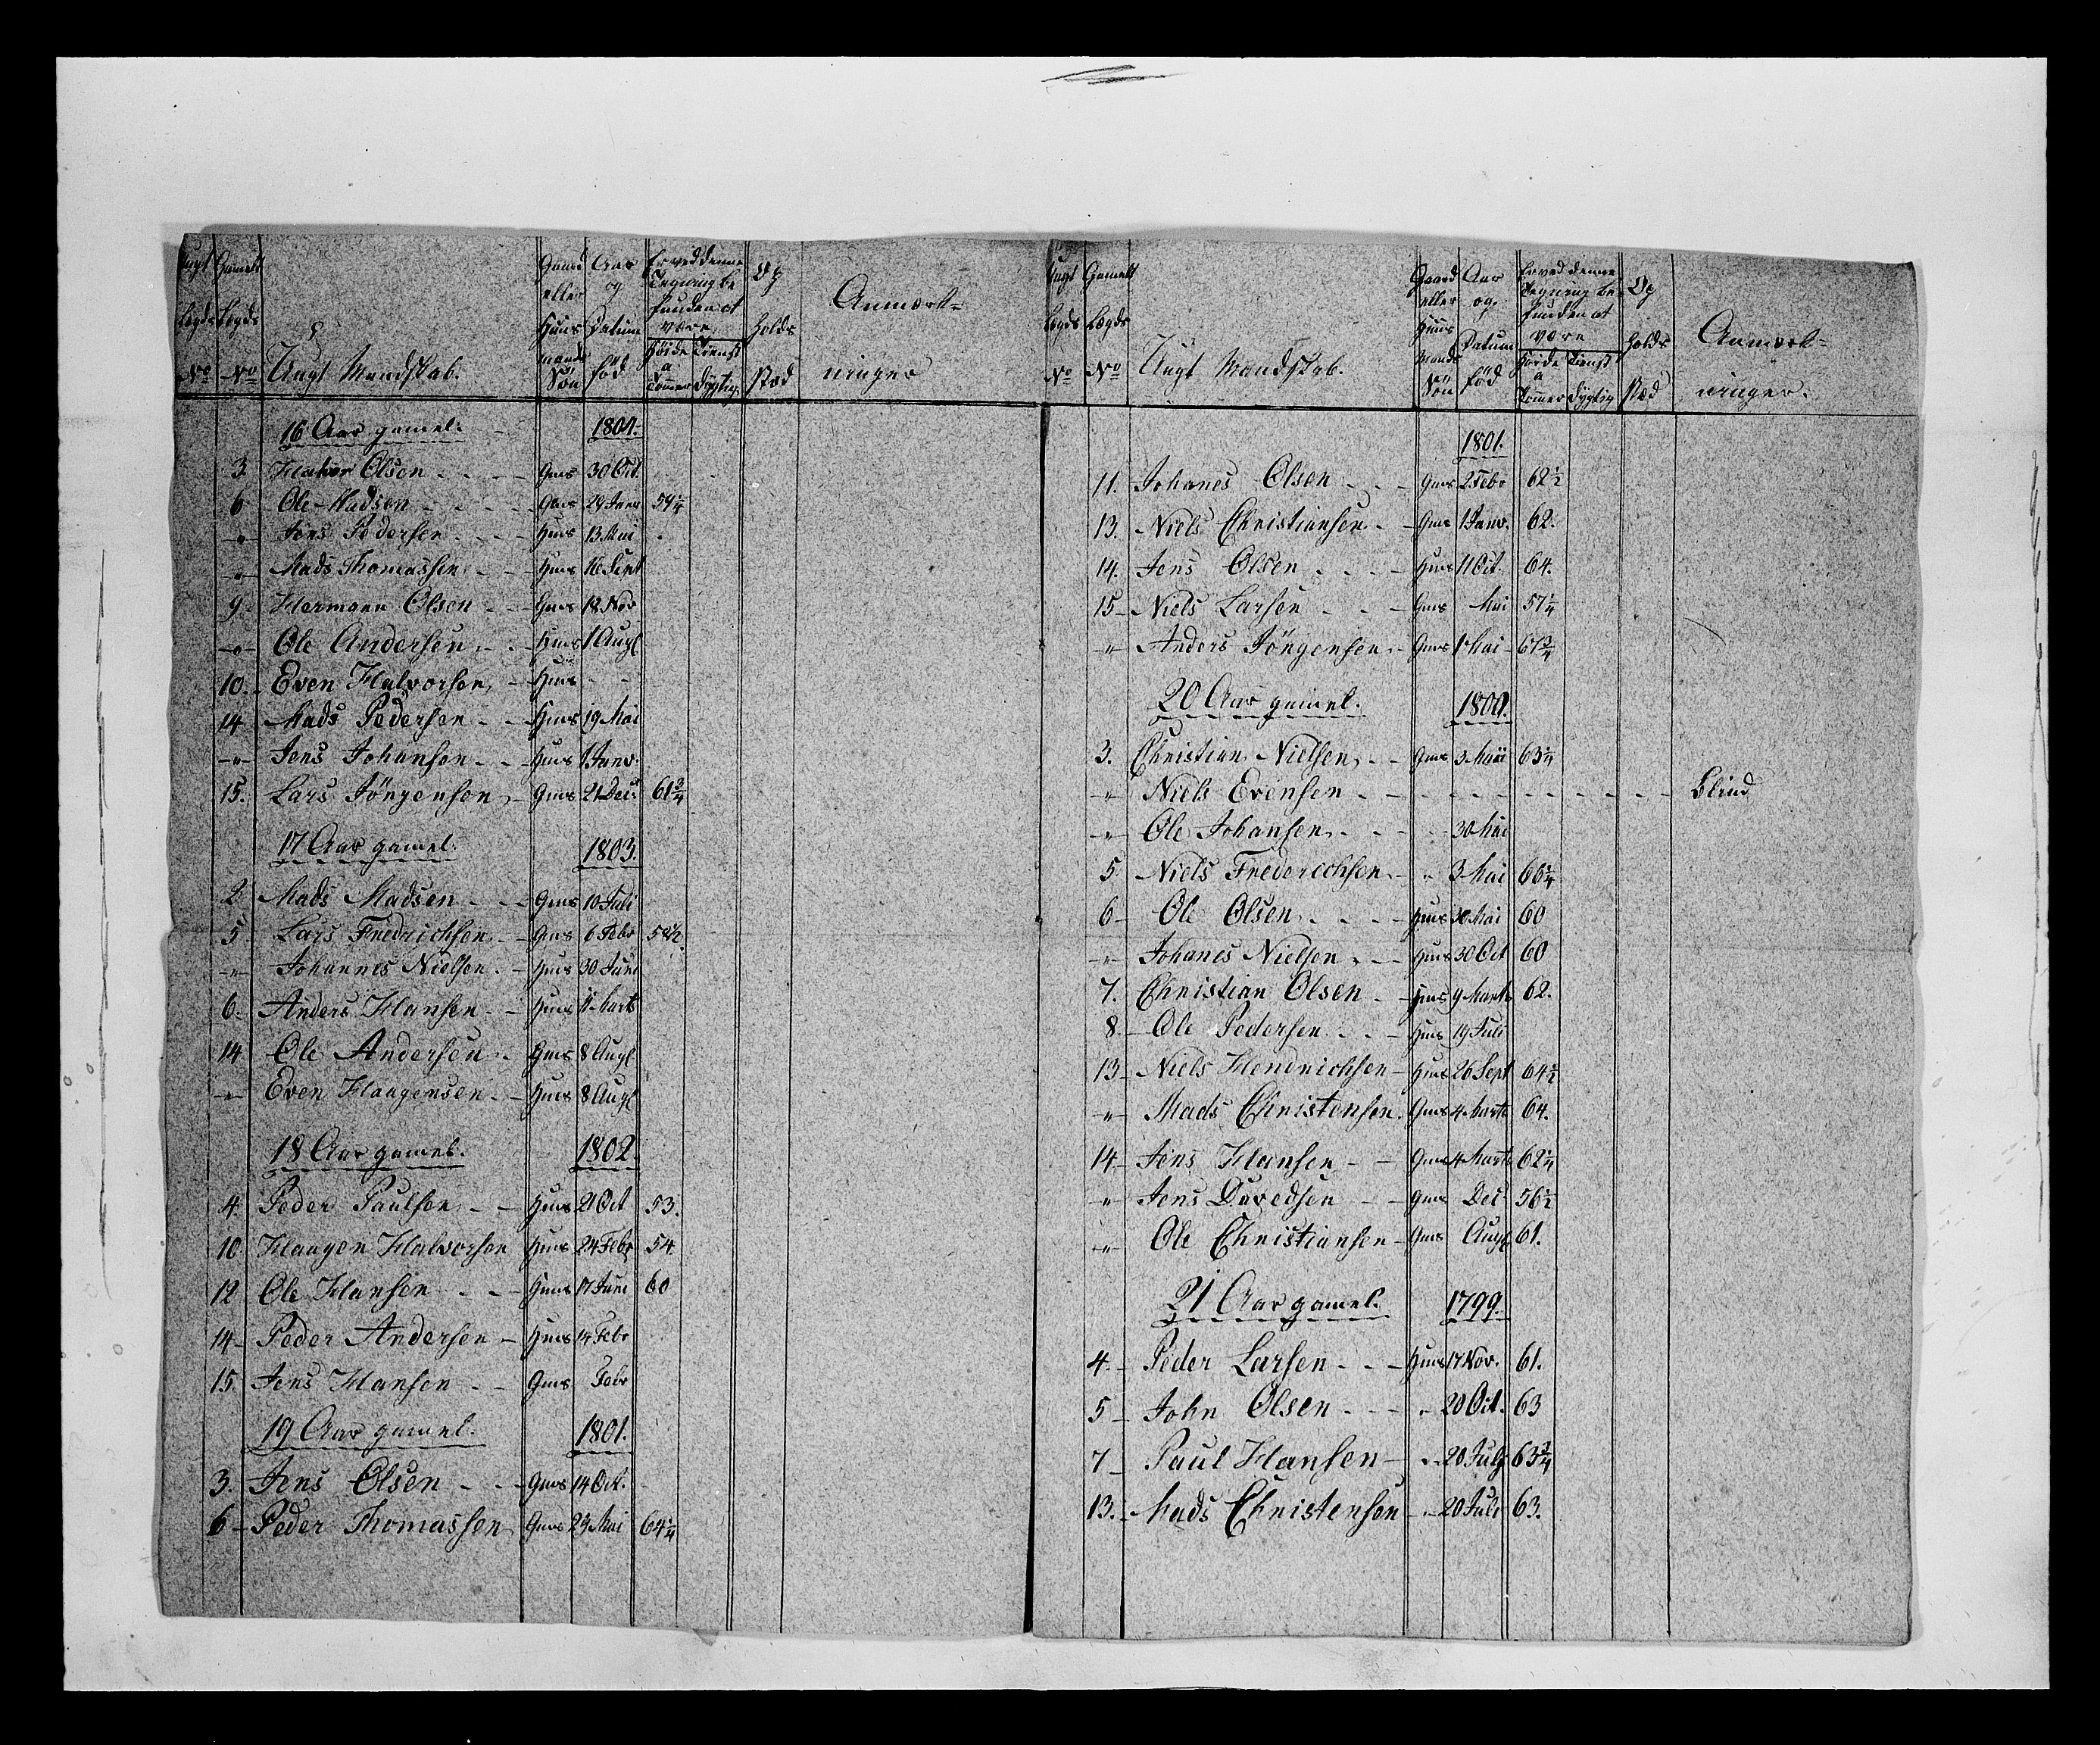 Ungt Lægds No
Gamelt Lægds No
Ungt Mandskab.
Gaard eller Huus mands Søn
Aar og Datum fød
Er ved denne Tegning be funden at være
Høide a Tomer
Tienst Dygtig
Op holds stæd
Anmærk= ninger
16 Aar gamel. 1804.
3 Halvor Olsen Gms 30 Oct.
6 Ole Madsen Gms 29 Janv 54 1/4
" Jens Pedersen Hms 13 Mai
" Mads Thomassen Hms 16 Sept
9 Hermann Olsen Gms 18 Nov
" Ole Andersen Hms 1 Augt
10. Even Halvorsen Hms
14 Mads Pedersen Hms 19 Mai
" Jens Johansen Hms 1 Janv.
15. Lars Jörgensen Gms 21 Dec: 61 3/4
17 Aar gamel. 1803.
2 Mads Madsen Gms 10 Juli
5 Lars Fredrichsen Gms 6 Febr 58 1/2
" Johannes Nielsen Hms 30 Juni
6 Anders Hansen Hms 11 Marts
14 Ole Andersen Gms 8 Augt
" Even Haagensen Hms 8 Augt
18 Aar gamel. 1802.
4. Peder Paulsen Hms 21 Oct 53.
10 Haagen Halvorsen Hms 24 Febr 54
12 Ole Hansen Hms 17 Juni 60
14 Peder Andersen Hms 14 Febr
15. Jens Hansen Gms Febr
19 Aar gamel. 1801.
3. Jens Olsen Gms 14 Oct.
6 Peder Thomassen Gms 23 Mai 64 1/4
Ungt Lægds No
Gamelt Lægds No
Ungt Mandskab.
Gaard eller Huus Mands Søn
Aar og Datum fød
Er ved denne Tegning be funden at være
Høide a Tomer
Tienst Dygtig
Op holds stæd
Anmærk= ninger.
1801.
11. Johanes Olsen Gms 2 Febr 62 1/2
13. Niels Christiansen Gms 1 Janv. 62.
14. Jens Olsen Hms 11 Oct. 64.
15 Niels Larsen Gms Mai 57 1/4
" Anders Jörgensen Gms 1 Mai 67 3/4
20 Aar gamel. 1800.
3. Christian Nielsen Gms 3 Mai 63 1/4
" Niels Evensen Blind
" Ole Johansen 30 Mai
5 Niels Frederichsen " 3 Mai 66 1/4
6 Ole Olsen Hms 30 Mai 60
" Johanes Nielsen Hms 30 Oct 60
7. Christian Olsen Hms 9 Marts 62.
8 Ole Pedersen Hms 19 Juli
13 Niels Hendrichsen Hms 26 Sept 64 1/2
" Mads Christensen Gms 4 Marts 64.
14 Jens Hansen Gms 4 Marts 62 1/4
" Jens Davedsen Gms Dec 56 1/2
" Ole Christiansen Gms Augt 61.
21 Aar gamel. 1799.
4. Peder Larsen Hms 17 Nov. 61.
5 John Olsen " 20 Oct. 63
7 Paul Hansen " 20 July 63 3/4
13. Mads Christensen " 20 Juli 63.